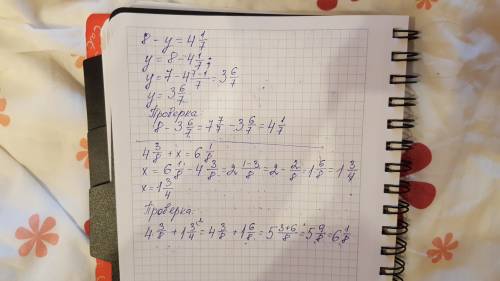 8 - y = 4 1/7
y = 8 - 4 1/7;
y = 7 - 4 7-1/7 = 3 6/7
y = 3 6/7
Проверка
8 - 3 6/7 = 7 7/7 - 3 6/7 = 4 1/7
4 3/8 + x = 6 1/8
x = 6 1/8 - 4 3/8 = 2 1-3/8 = 2 - 2/8 = 1 6/8 = 1 3/4
x = 1 3/4
Проверка:
4 3/8 + 1 3/4 = 4 3/8 + 1 6/8 = 5 3+6/8 = 5 9/8 = 6 1/8